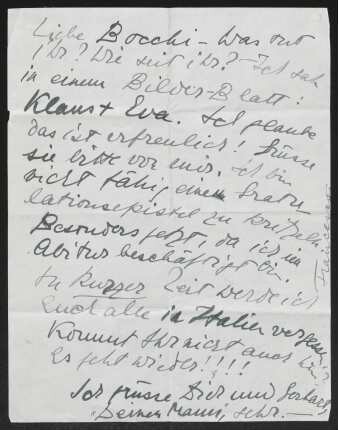 Liebe Bocchi – was tut
ihr? Wie seit ihr? – Ich sah
in einem Bilder-Blatt:
Klaus + Eva. Ich glaube
das ist erfreulich! Grüsse
sie bitte von mir. Ich bin
nicht fähig einen Gratu-
lationsepistel zu kritzeln.
Besonders jetzt, da ich im
Abitur beschäftigt bin.
In kurzer Zeit werde ich
Euch alle in Italien
Kommt Ihr nicht auch
Es geht wieder!!!!
Ich grüsse Dich und Gerhart,
Deinen Mann, sehr. –
Francesco